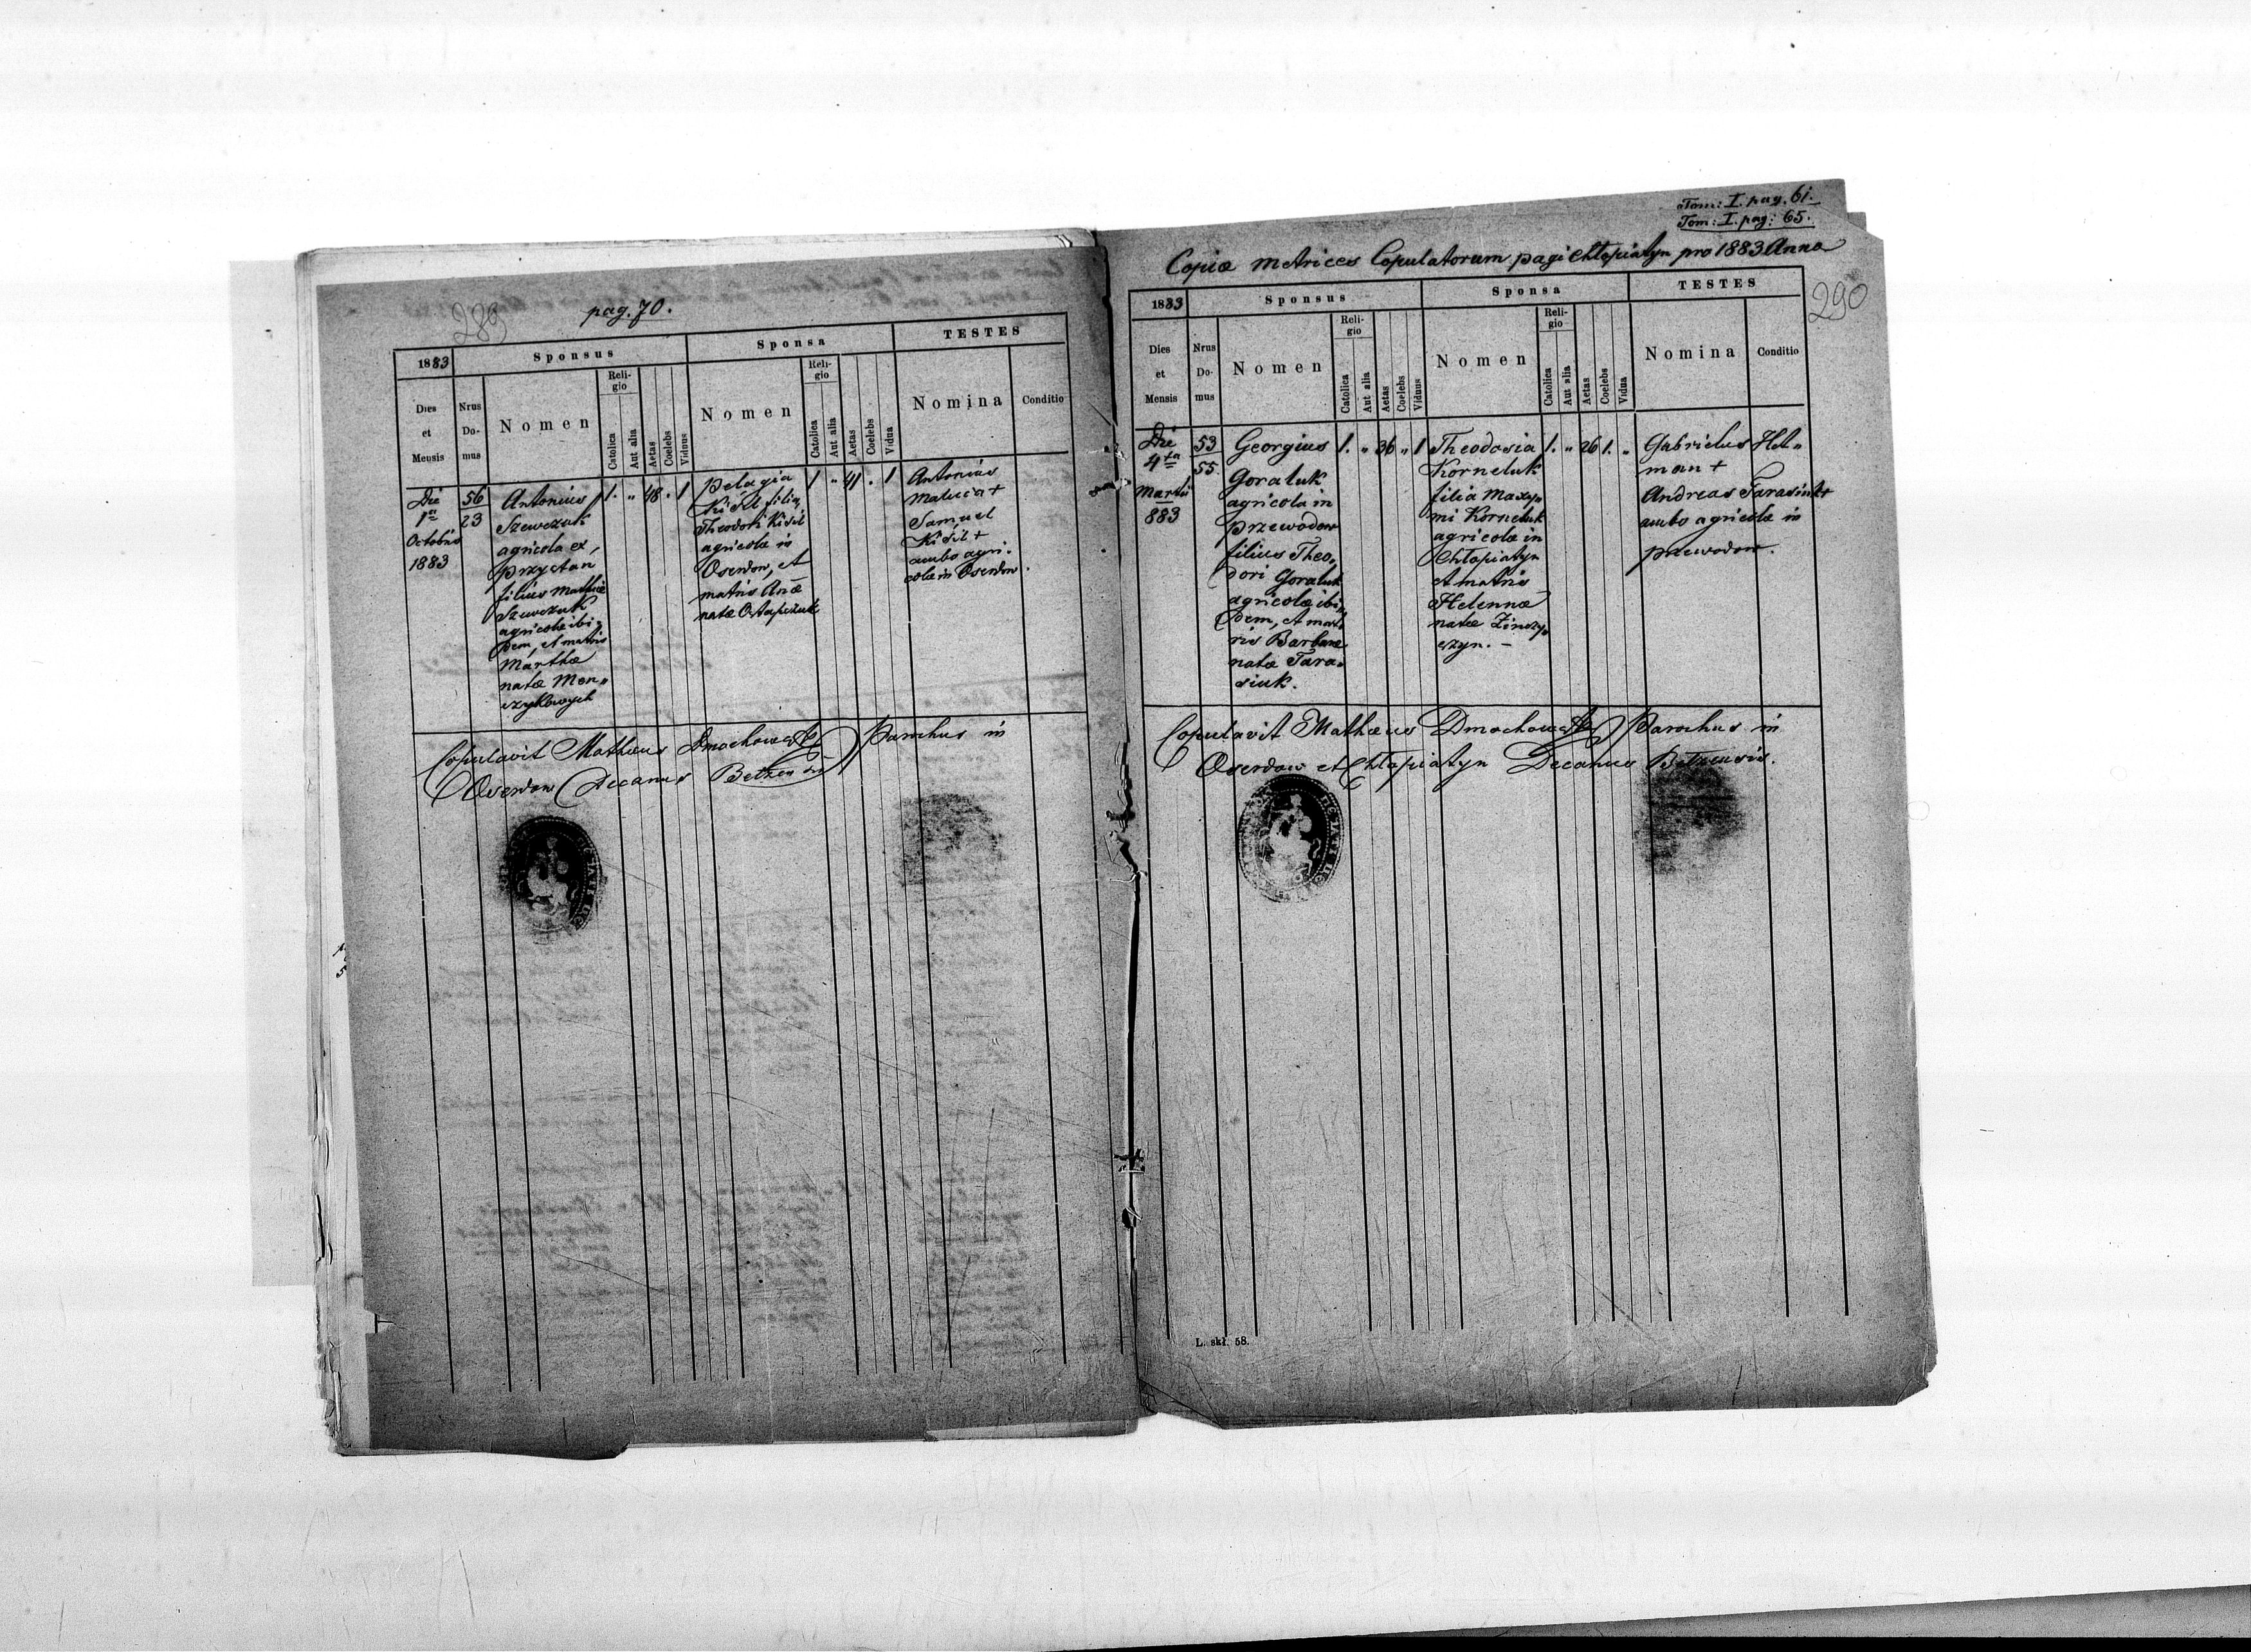 289
pag. 70.
1883
Sponsus
Sponsa
TESTES
Dies et Mensis
Nrus Domus
Nomen
Religio
Catolica
Aut alia
Aetas
Coelebs
Viduus
Nomen
Religio
Catolica
Aut alia
Aetas
Coelebs
Vidua
Nomina
Conditio
Die
1a
Octobris
1883
56
23
Antonius
Szewczuk
agricola ex
Przystan
filius Mathiæ
Szewczuk
agricolæ ibi-
dem, et matris
Marthæ
natæ Men„
czykowych
1. „ 48 . 1
Pelagia
Kisil filia
Theodori Kisil
agricolæ in
Oserdow, et
matris Anæ
natæ Ostapczuk
1 „ 41 . 1
Antonius
Malucca +
Samuel
Kisil +
ambo agri-
colæ in Oserdow.
Copulavit Mathæus Dmochowski Parochus in
Oserdow Decanus Betzensis
Tom: I. pag. 61.
Tom: I. pag: 65.
Copiæ metrices Copulatorum pagi Chłopiatyn pro 1883 Anno
290
1883
Sponsus
Sponsa
TESTES
Dies et Mensis
Nrus Domus
Nomen
Religio
Catolica
Aut alia
Aetas
Coelebs
Viduus
Nomen
Religio
Catolica
Aut alia
Aetas
Coelebs
Vidua
Nomina
Conditio
Die
4ta
Martii
883
53
55
Georgius
Goraluk
agricola in
Przewodow
filius Theo„
dori Goraluk
agricolæ ibi„
dem, et mat„
ris Barbaræ
natæ Tara„
siuk.
1. „ 36 „ 1
Theodosia
Korneluk
filia Maxy„
mi Korneluk
agricolæ in
Chłopiatyn
et matris
Helennæ
natæ Zinczy„
szyn. –
1. „ 26 1. „
Gabrielus Hel„
man +
Andreas Tarasiuk +
ambo agricolæ in
Przewodow.
Copulavit Mathæus Dmochowski Parochus in
Oserdow et Chłopiatyn Decanus Betzensis.
L. skł. 58.